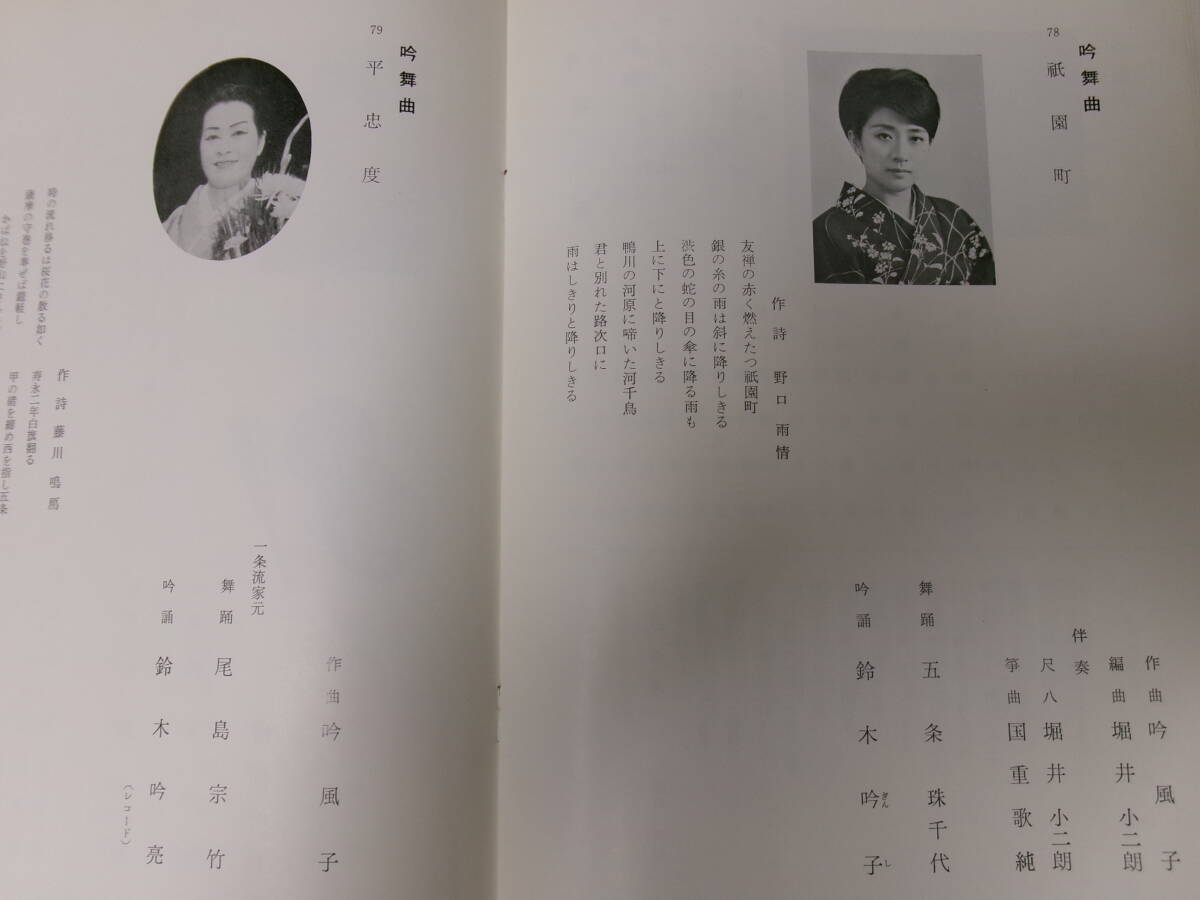 78
吟舞曲
祇園町
作詩 野口雨情
友禅の赤く燃えたつ祇園町
銀の糸の雨は斜に降りしきる
渋色の蛇の目の傘に降る雨も
上に下にと降りしきる
鴨川の河原に啼いた河千鳥
君と別れた路次口に
雨はしきりと降りしきる
作曲 吟風子
編曲 堀井小二朗
伴奏
尺八 堀井小二朗
箏曲 国重歌純
舞踊 五条珠千代
吟誦 鈴木吟子
ぎん し
79
吟舞曲
平忠度
作詩 藤川鳴馬
寿永二年白旗翻る
甲の緒を締め西を指し五条
時の流れ移るは桜花の散る如く
薩摩の守巻を奉せば
作曲 吟風子
一条流家元
舞踊 尾島宗竹
吟誦 鈴木吟亮
(レコード)